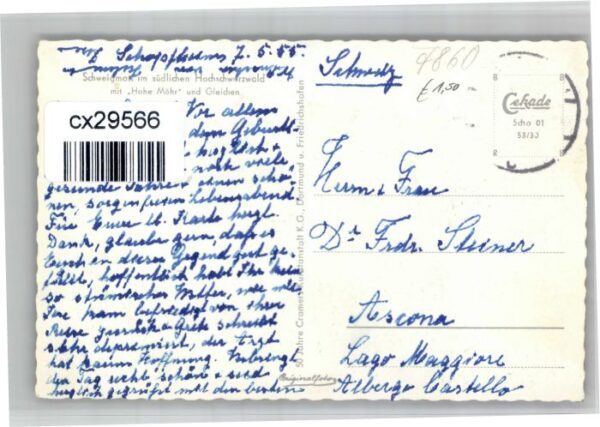 7.5.55.
Schweigmatt im südlichen Hochschwarzwald
mit „Hohe Möhr" und Gleichen
cx29566
Vor allem
dem Geburts-
noch viele
gesunde Jahre + einen schö-
nen, sorgenfreien Lebensabend.
Für Eure lb. Karte herzl.
Dank, glaube gern, daß es
Euch in dieser Gegend gut ge-
fällt, hoffentlich habt Ihr kein
so stürmisches Wetter, wie wir
kam befriedigt von ihrer
Reise zurück + Grete schreibt
sehr deprimiert, der Arzt
hat kaum Hoffnung. Verbringt
den Tag recht schön + seid
herzlich gegrüßt mit den besten
50 Jahre Cramers Kunstanstalt K.G., Dortmund u. Friedrichshafen
Originalfoto
Schweiz
4860
£ 1,50
Cekade
Scho 01
53/30
Herrn + Frau
Dr Frdr. Steiner
Ascona
Lago Maggiore
Albergo Castello